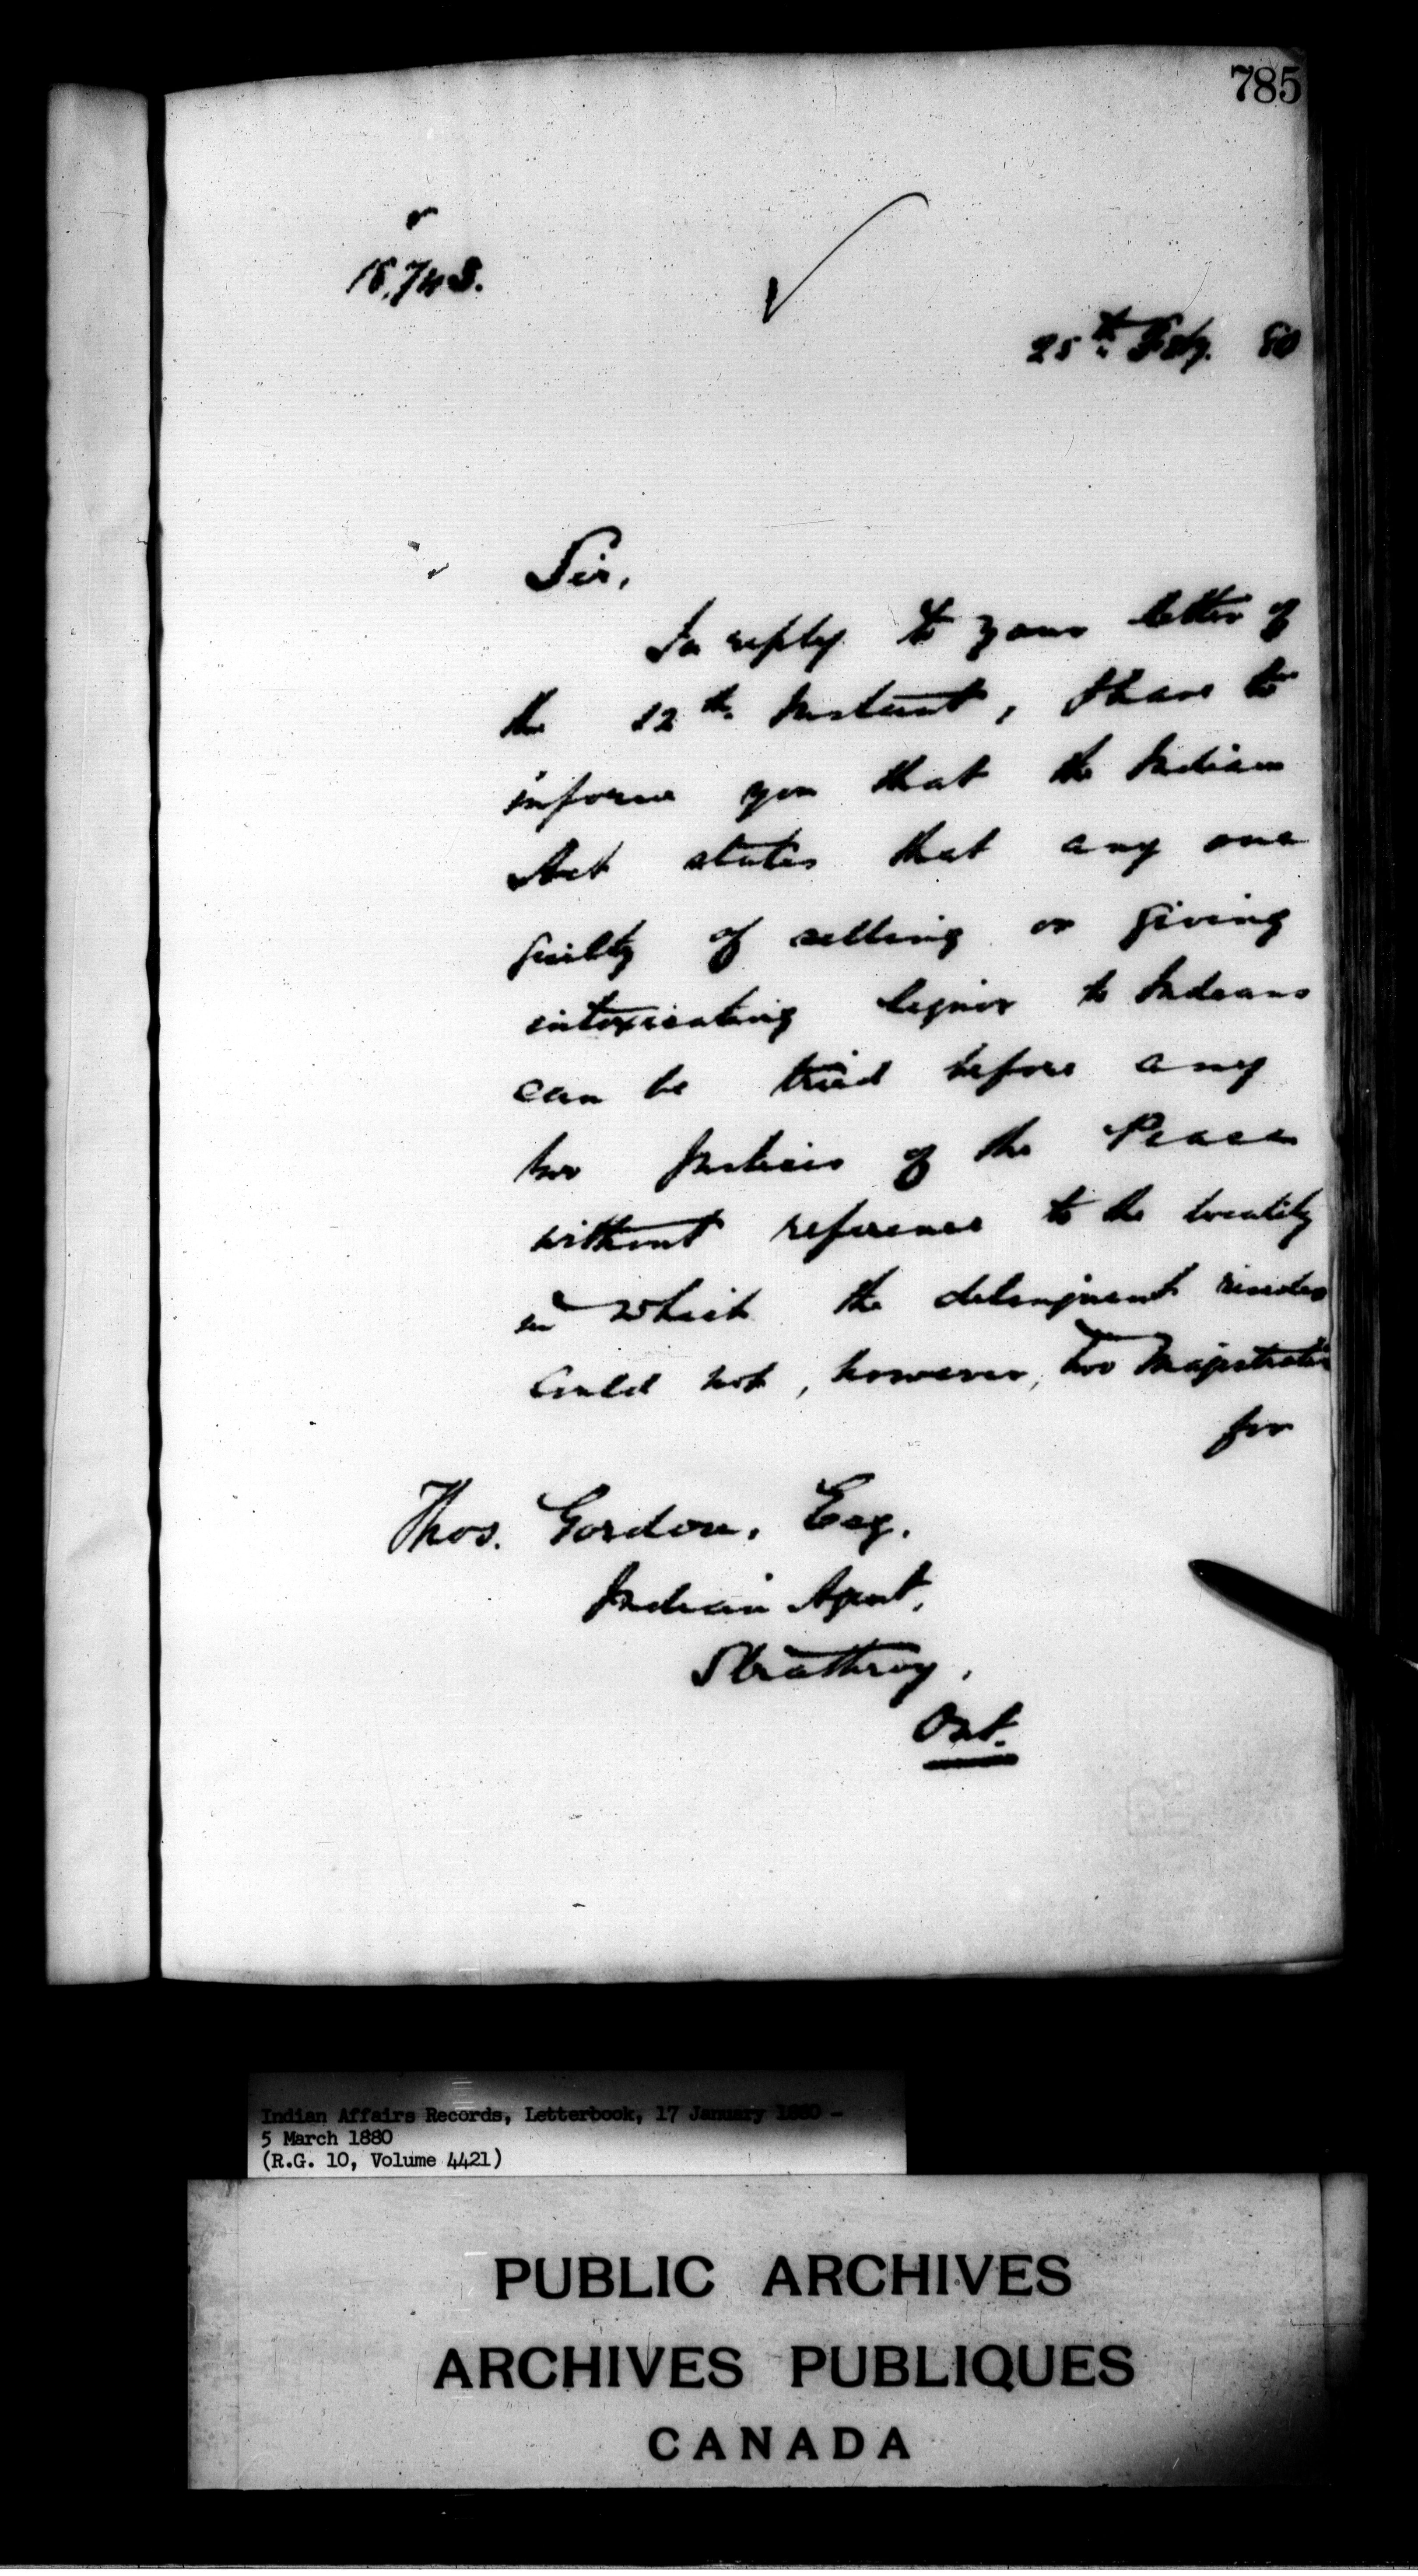 785
18,748.
25th Feby. 80
Sir,
In reply to your letter of
the 12th Instant, I have to
inform you that the Indian
Act states that any one
guilty of selling or giving
intoxicating liquor to Indians
can be tried before any
two Justices of the Peace
without reference to the locality
in which the delinquent resides
Could not, however, two Magistrates
for
Thos. Gordon, Esq.
Indian Agent,
Strathroy,
Ont.
Indian Affairs Records, Letterbook, 17 January 1880 -
5 March 1880
(R.G. 10, Volume 4421)
PUBLIC ARCHIVES
ARCHIVES PUBLIQUES
CANADA